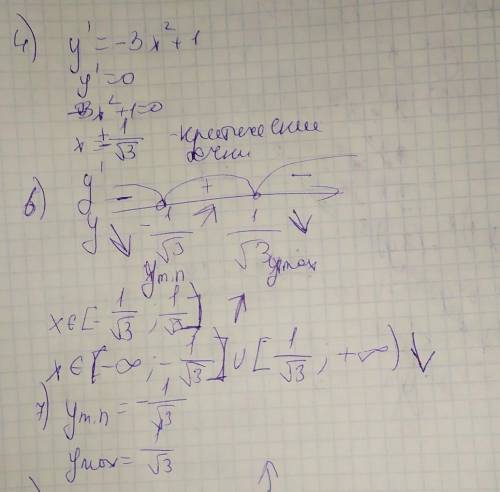 4) y' = -3x² + 1
y' = 0
-3x² + 1 = 0
x = ± 1/√3 - критические точки
6) y' - + -
y ↓ -1/√3 ↗ 1/√3 ↓
y min y max
x ∈ [-1/√3 ; 1/√3] ↑
x ∈ [-∞ ; -1/√3] ∪ [1/√3 ; +∞) ↓
7) y min = -1/√3
y max = 1/√3
↑